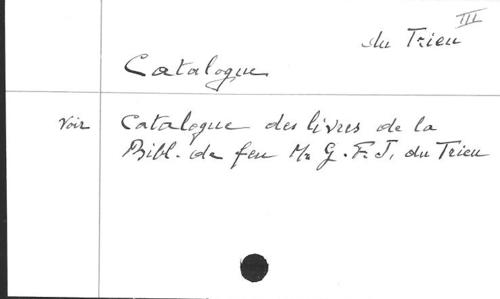 III
du Trieu
Catalogue
Voir Catalogue des livres de la
Bibl. de feu Mr G. F. J. du Trieu